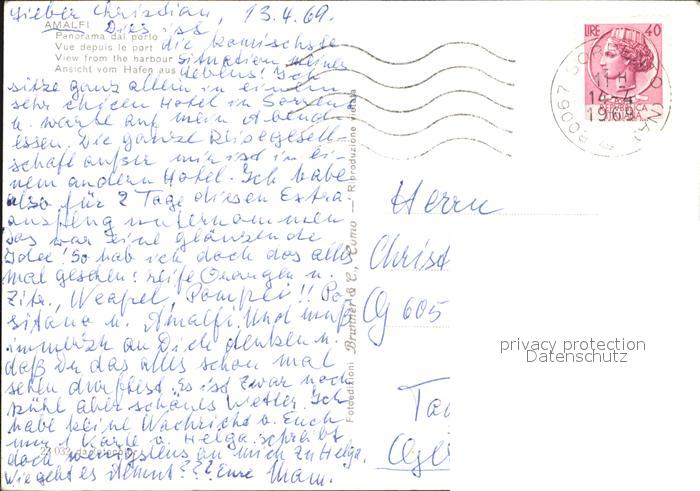 Lieber Christian, 13.4.69.
AMALFI Dies ist
Panorama dal porto die komischste
Vue depuis le port
View from the harbour Situation meines
Ansicht vom Hafen aus Lebens! Ich
sitze ganz allein in einem
sehr chicen Hotel in Sorrent
u. warte auf mein Abend
essen. Die ganze Reisegesell-
schaft außer mir ist in ei-
nem andern Hotel. Ich habe
also für 2 Tage diesen Extra-
ausflug unternommen
das war eine glänzende
Idee! So hab ich doch das alles
mal gesehen: reife Orangen u.
Zitr., Neapel, Pompei!! Po-
sitano u. Amalfi. Und muß
immerzu an Dich denken u.
daß Du das alles schon mal
sehen durftest. Es ist zwar noch
kühl aber schönes Wetter. Ich
habe keine Nachricht v. Euch
nur 1 Karte v. Helga. schreibt
doch wenigstens an mich zu Helga.
Wie geht es Almut??? Eure Mam.
Fotoedizioni Brunner & C., Como — Riproduzione vietata
LIRE 40
80067 SORRENTO (NA)
11 H
14-4
1969
REPUBBLICA
ITALIANA
Herrn
Christ
605
privacy protection
Datenschutz